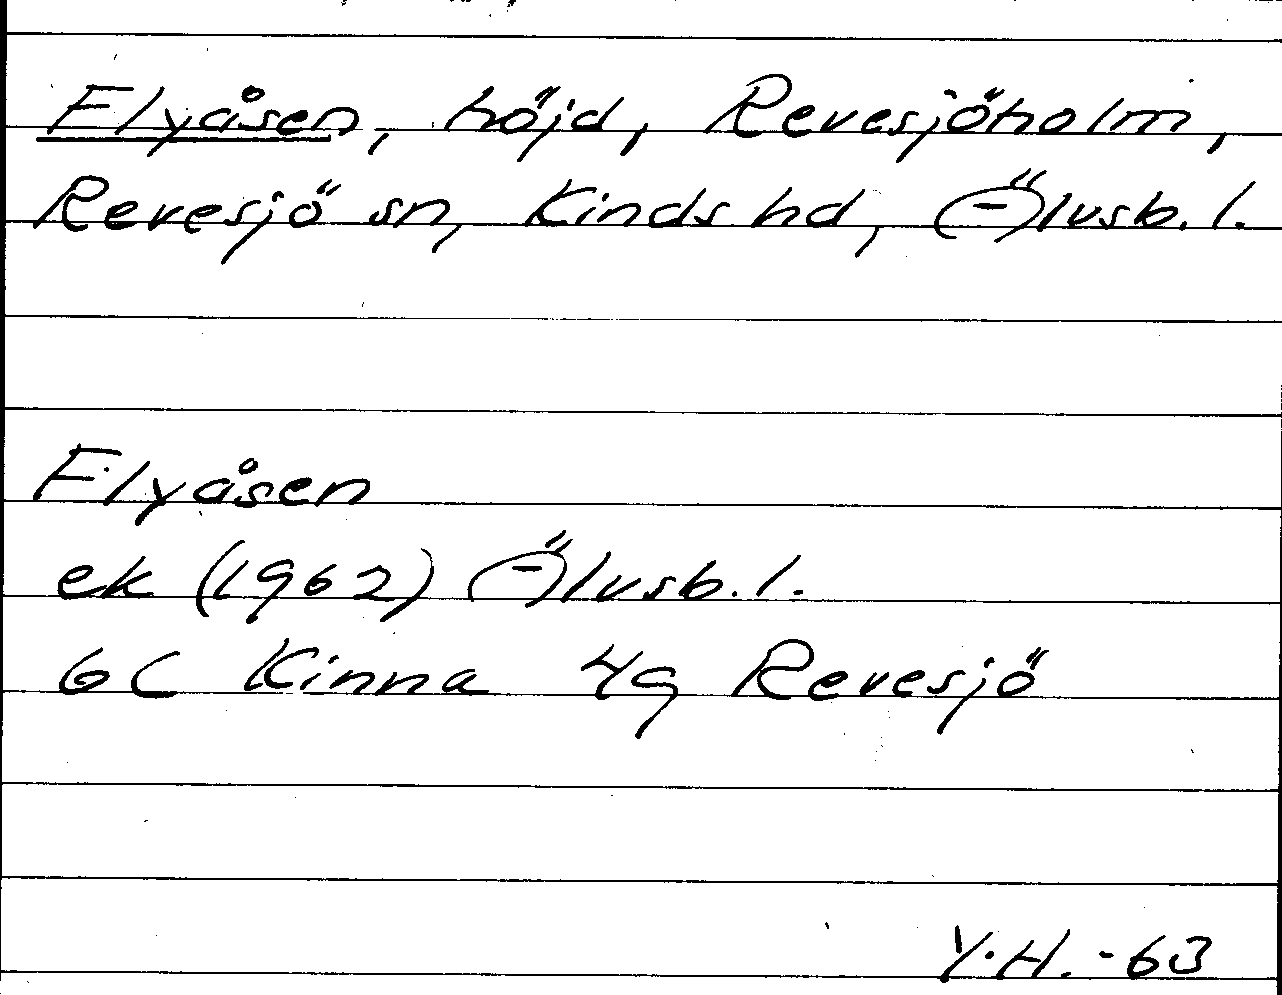 Flyåsen, höjd, Revesjöholm,
Revesjö sn, Kinds hd, Älvsb. l.
Flyåsen
ek (1962) Älvsb. l.
6C Kinna 4g Revesjö
Y.H. -63